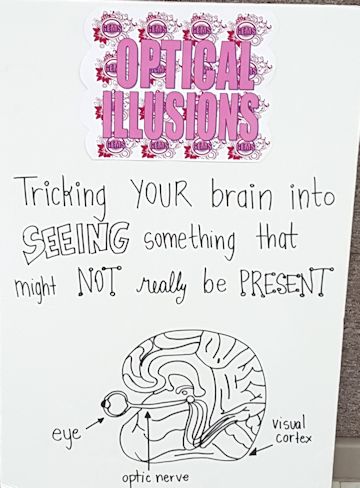 OPTICAL
ILLUSIONS
Tricking YOUR brain into
SEEING something that
might NOT really be PRESENT
eye
optic nerve
visual
cortex